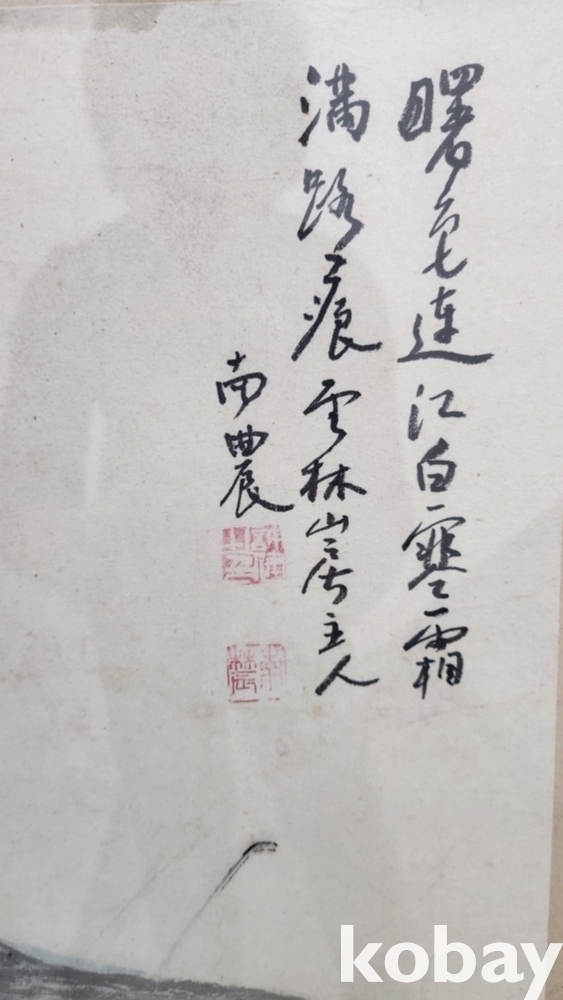 曙色連江白寒霜
滿路痕雲林山房主人
南農
kobay